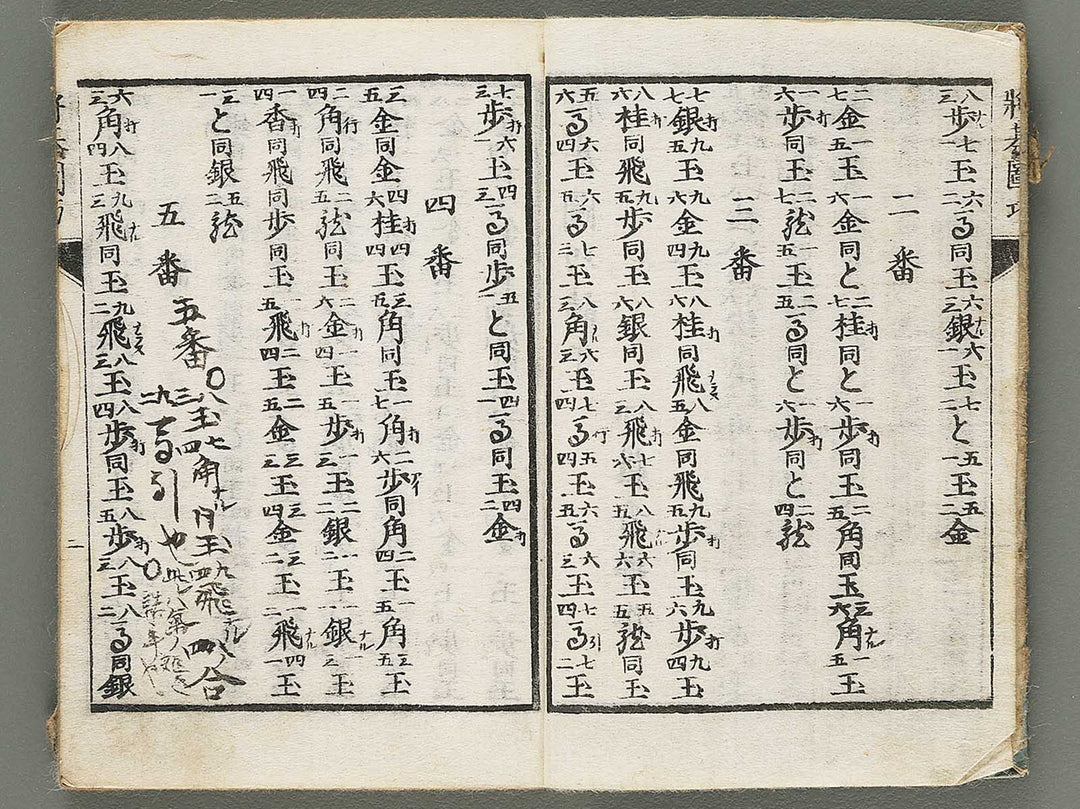 八三歩ナル七一玉六二馬同玉六三銀ナル六一玉七二と五一玉五二金
二番
二七金一五玉一六金同と二七桂打同と一六歩打同玉二五角同玉三六角ナル一五玉
一六歩打同玉二七龍一五玉二五馬同と一六歩打同と二四龍
三番
七七銀打九五玉九六金九四玉八六桂打同飛ナラズ八五金同飛九五歩打同玉九六歩打九四玉
八六桂打同飛九五歩同玉八六銀同玉八三飛打七六玉八五飛ナル六六玉五五龍同玉
五六馬六四玉六五馬七三玉八三角ナル六三玉七四馬行五四玉六五馬六三玉七四馬引七二玉
七三歩打六一玉四三馬同歩五一と同玉四一馬同玉四二金打
四番
三五金同金四六桂打四四玉三五角同玉一七角打二六歩アイ同角二四玉一五角三五玉
二四角行同飛二五龍同玉二六金打一四玉一五歩打一三玉二二銀一二玉一一銀ナル一三玉
一四香打同飛同歩同玉一五飛打二四玉二五金三三玉三四金二二玉一二飛ナル四一玉
三一と同銀五二龍
五番
五番
六三角打八四玉九三飛ナル同玉九二飛ナラズ八三玉八四歩打同玉八五歩打八三玉八二馬同銀